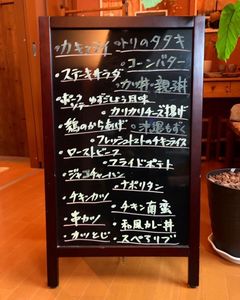 ・カキフライ ・トリのタタキ
・コーンバター
・ステーキサラダ ・カツ丼・親子丼
・ポークソテー ゆずこしょう風味
・カリカリチーズ揚げ
・鶏のから揚げ ・沖縄もずく
・フレッシュトマトのチキンライス
・ローストビーフ
・フライドポテト
・ジャコチャーハン
・ナポリタン
・チキンカツ ・チキン南蛮
・串カツ ・和風カレー丼
・カツとじ ・スペアリブ